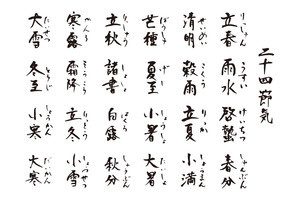 二十四節気
立春 雨水 啓蟄 春分
りっしゅん うすい けいちつ しゅんぶん
清明 穀雨 立夏 小満
せいめい こくう りっか しょうまん
芒種 夏至 小暑 大暑
ぼうしゅ げし しょうしょ たいしょ
立秋 諸書 白露 秋分
りっしゅう しょしょ はくろ しゅうぶん
寒露 霜降 立冬 小雪
かんろ そうこう りっとう しょうせつ
大雪 冬至 小寒 大寒
たいせつ とうじ しょうかん だいかん